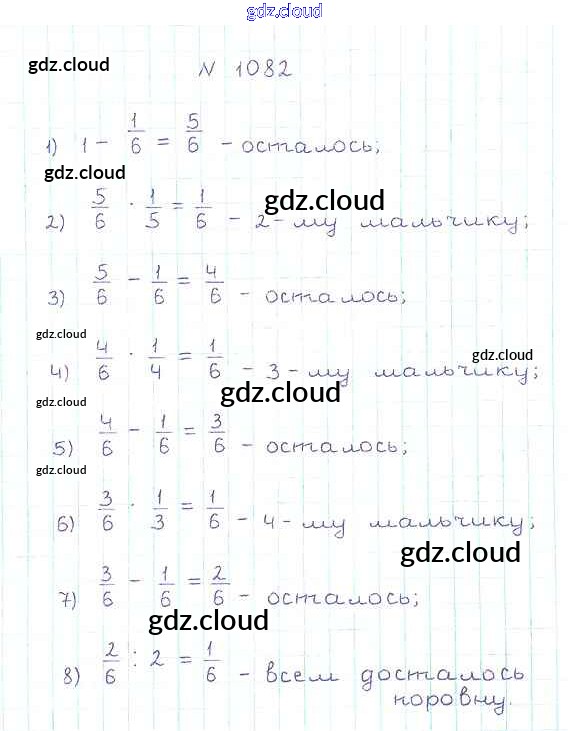 gdz.cloud
gdz.cloud
N 1082
1) 1 - 1/6 = 5/6 - осталось;
gdz.cloud
2) 5/6 · 1/5 = 1/6 - 2-му мальчику;
gdz.cloud
3) 5/6 - 1/6 = 4/6 - осталось;
gdz.cloud
4) 4/6 · 1/4 = 1/6 - 3-му мальчику;
gdz.cloud
gdz.cloud
gdz.cloud
5) 4/6 - 1/6 = 3/6 - осталось;
gdz.cloud
6) 3/6 · 1/3 = 1/6 - 4-му мальчику;
gdz.cloud
7) 3/6 - 1/6 = 2/6 - осталось;
gdz.cloud
8) 2/6 : 2 = 1/6 - всем досталось
поровну.